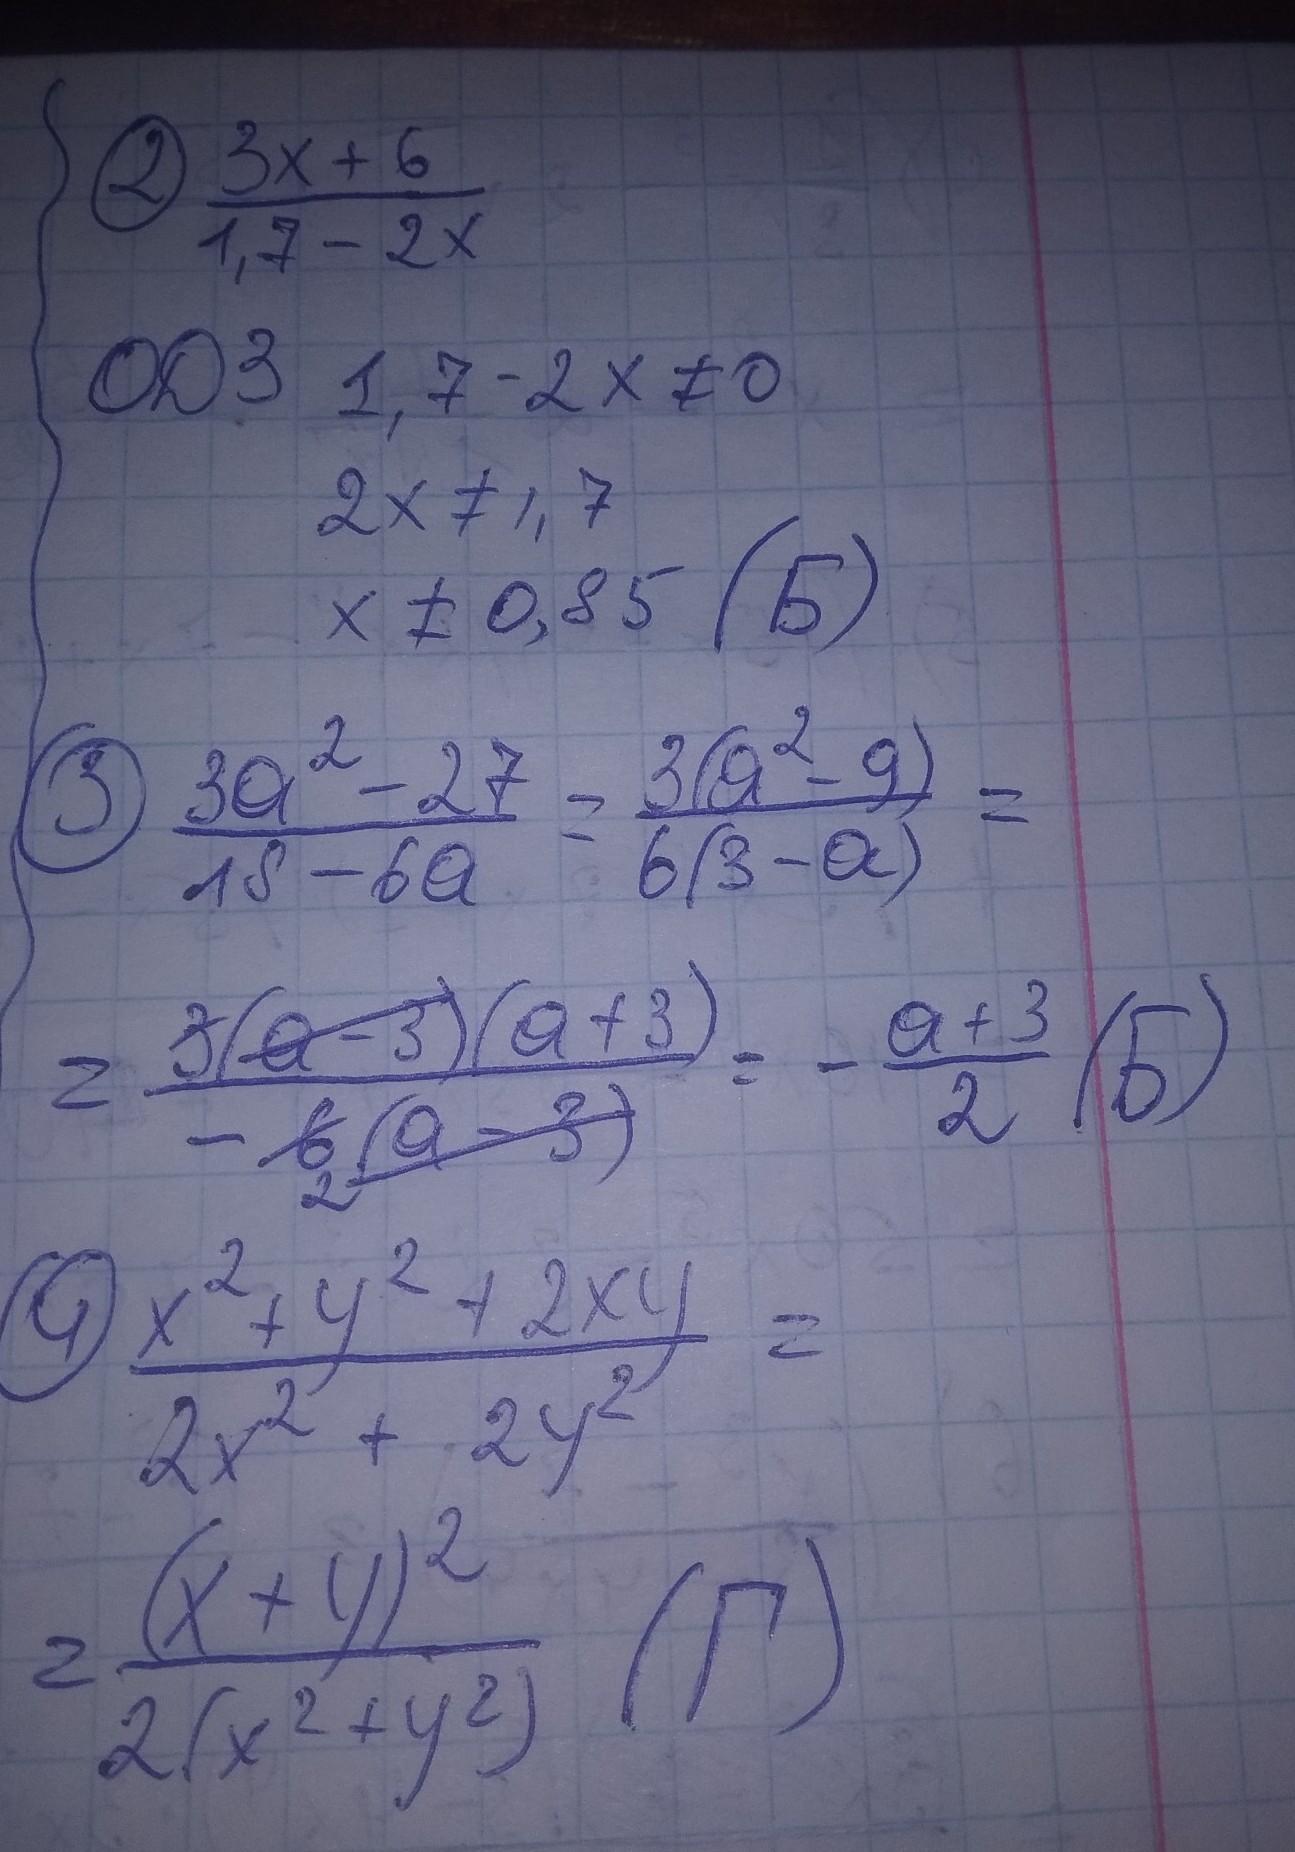 ② (3x + 6)/(1,7 - 2x)
ОДЗ 1,7 - 2x ≠ 0
2x ≠ 1,7
x ≠ 0,85 (Б)
③ (3a² - 27)/(18 - 6a) = (3(a² - 9))/(6(3 - a)) =
= (3(a - 3)(a + 3))/(- 6(a - 3)) = - (a + 3)/2 (Б)
2
④ (x² + y² + 2xy)/(2x² + 2y²) =
= (x + y)²/(2(x² + y²)) (Г)